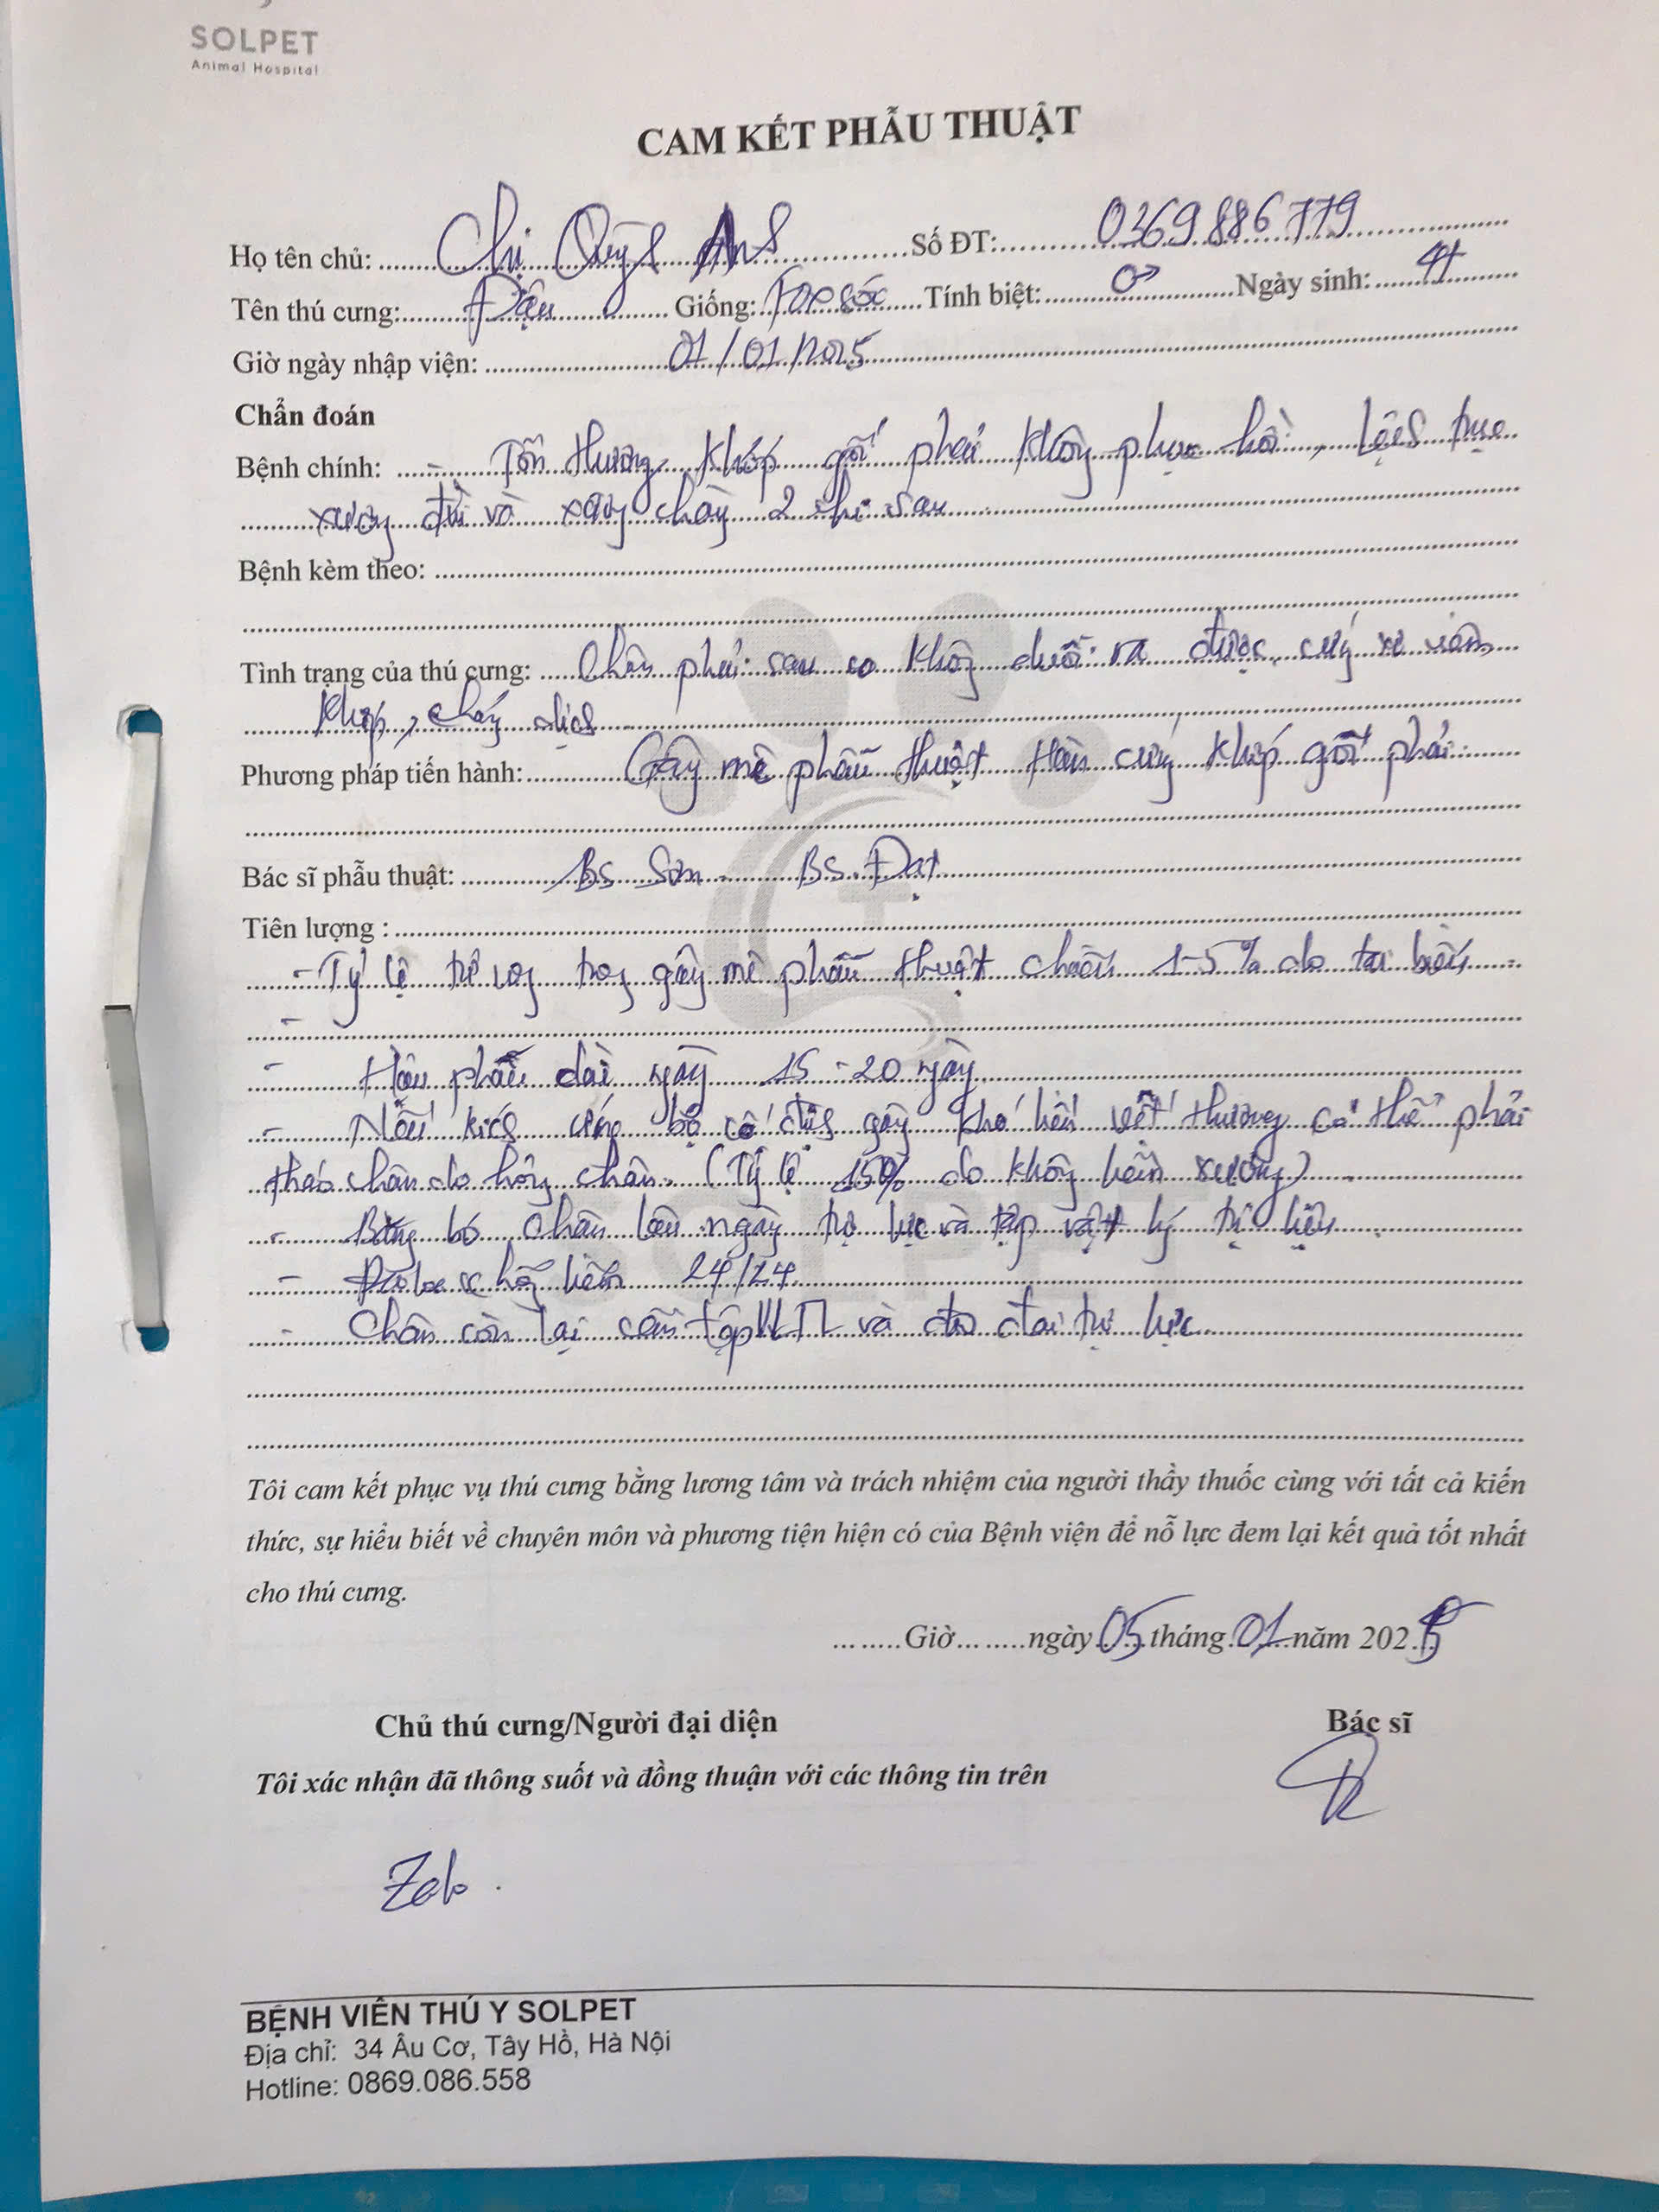 SOLPET
Animal Hospital
CAM KẾT PHẪU THUẬT
Họ tên chủ: Chị Quỳnh Anh Số ĐT: 0369886779
Tên thú cưng: Đậu Giống: Fox sóc Tính biệt: ♂ Ngày sinh:
Giờ ngày nhập viện: 01/01/2025
Chẩn đoán
Bệnh chính: - Tổn thương khớp gối phải không phục hồi, lệch trục
xương đùi và xương chày 2 chi sau
Bệnh kèm theo:
Tình trạng của thú cưng: Chân phải sau co không duỗi ra được, cứng viêm
khớp, chảy dịch
Phương pháp tiến hành: Gây mê phẫu thuật Hàn cứng khớp gối phải
Bác sĩ phẫu thuật: BS Sơn - BS. Đạt
Tiên lượng :
- Tỷ lệ tử vong trong gây mê phẫu thuật chiếm 1-5% do tai biến
-
- Hậu phẫu dài ngày 15-20 ngày
- Nếu kích ứng bộ cố định gây khó liền vết thương có thể phải
tháo chân do hỏng chân. (Tỷ lệ 15% do không liền xương)
- Băng bó chân lâu ngày trợ lực và tập vật lý trị liệu
- chống liếm 24/24
- Chân còn lại cần tập VLTL và đeo đai trợ lực
Tôi cam kết phục vụ thú cưng bằng lương tâm và trách nhiệm của người thầy thuốc cùng với tất cả kiến
thức, sự hiểu biết về chuyên môn và phương tiện hiện có của Bệnh viện để nỗ lực đem lại kết quả tốt nhất
cho thú cưng.
........Giờ........ngày 05 tháng 01 năm 2025
Chủ thú cưng/Người đại diện Bác sĩ
Tôi xác nhận đã thông suốt và đồng thuận với các thông tin trên
Zalo.
BỆNH VIÊN THÚ Y SOLPET
Địa chỉ: 34 Âu Cơ, Tây Hồ, Hà Nội
Hotline: 0869.086.558